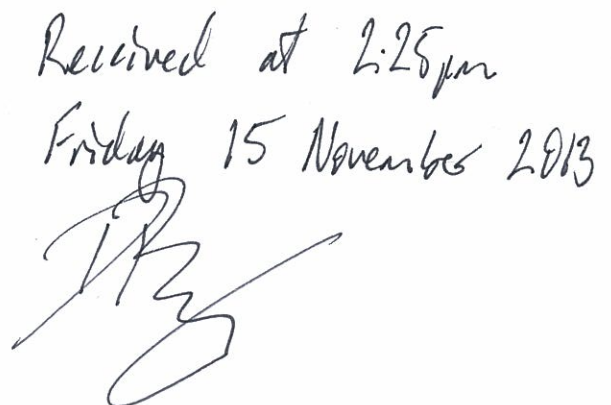 Received at 2:25pm
Friday 15 November 2013